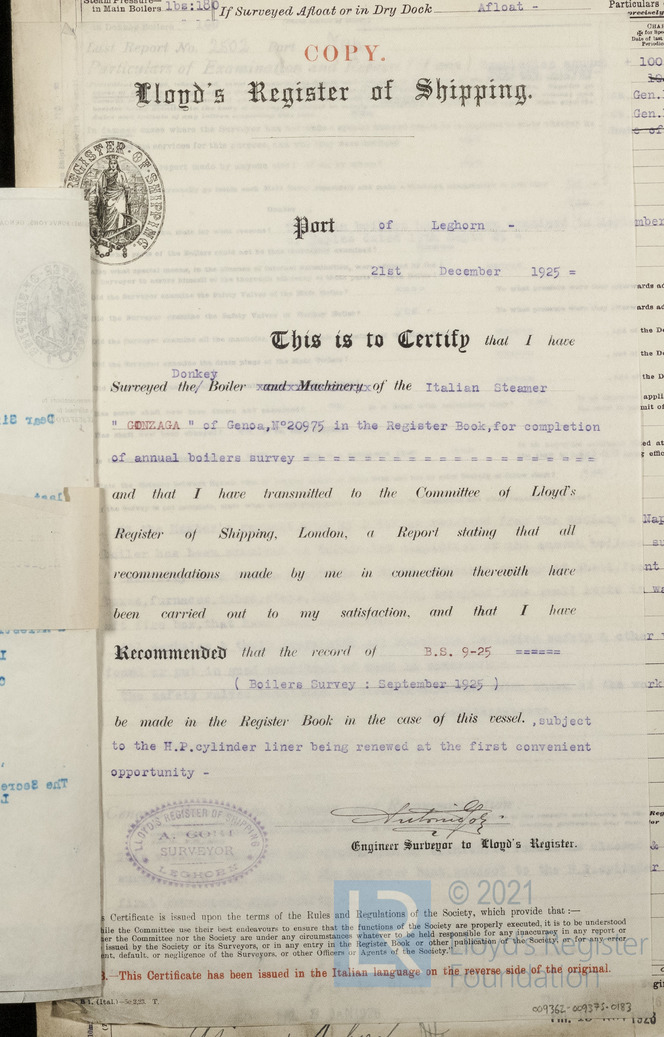 Steam Pressure
in Main Boilers lbs:180 If Surveyed Afloat or in Dry Dock Afloat -
Particulars
COPY.
Lloyd's Register of Shipping.
REGISTER·OF·SHIPPING.
Port of Leghorn -
21st December 1925 =
This is to Certify that I have
Donkey
Surveyed the/ Boiler and Machinery of the Italian Steamer
" GONZAGA " of Genoa,Nº20975 in the Register Book,for completion
of annual boilers survey = = = = = = = = = = = = = = = = = = = =
and that I have transmitted to the Committee of Lloyd's
Register of Shipping, London, a Report stating that all
recommendations made by me in connection therewith have
been carried out to my satisfaction, and that I have
Recommended that the record of B.S. 9-25 ======
( Boilers Survey : September 1925 )
be made in the Register Book in the case of this vessel. ,subject
to the H.P.cylinder liner being renewed at the first convenient
opportunity -
LLOYD'S REGISTER OF SHIPPING
SURVEYOR
LEGHORN
Engineer Surveyor to Lloyd's Register.
© 2021
Lloyd's Register
Foundation
Certificate is issued upon the terms of the Rules and Regulations of the Society, which provide that :—
While the Committee use their best endeavours to ensure that the functions of the Society are properly executed, it is to be understood
the Committee nor the Society are under any circumstances whatever to be held responsible for any inaccuracy in any report or
issued by the Society or its Surveyors, or in any entry in the Register Book or other publication of the Society, or for any error
default, or negligence of the Surveyors, or other Officers or Agents of the Society."
—This Certificate has been issued in the Italian language on the reverse side of the original.
009362-009375-0183